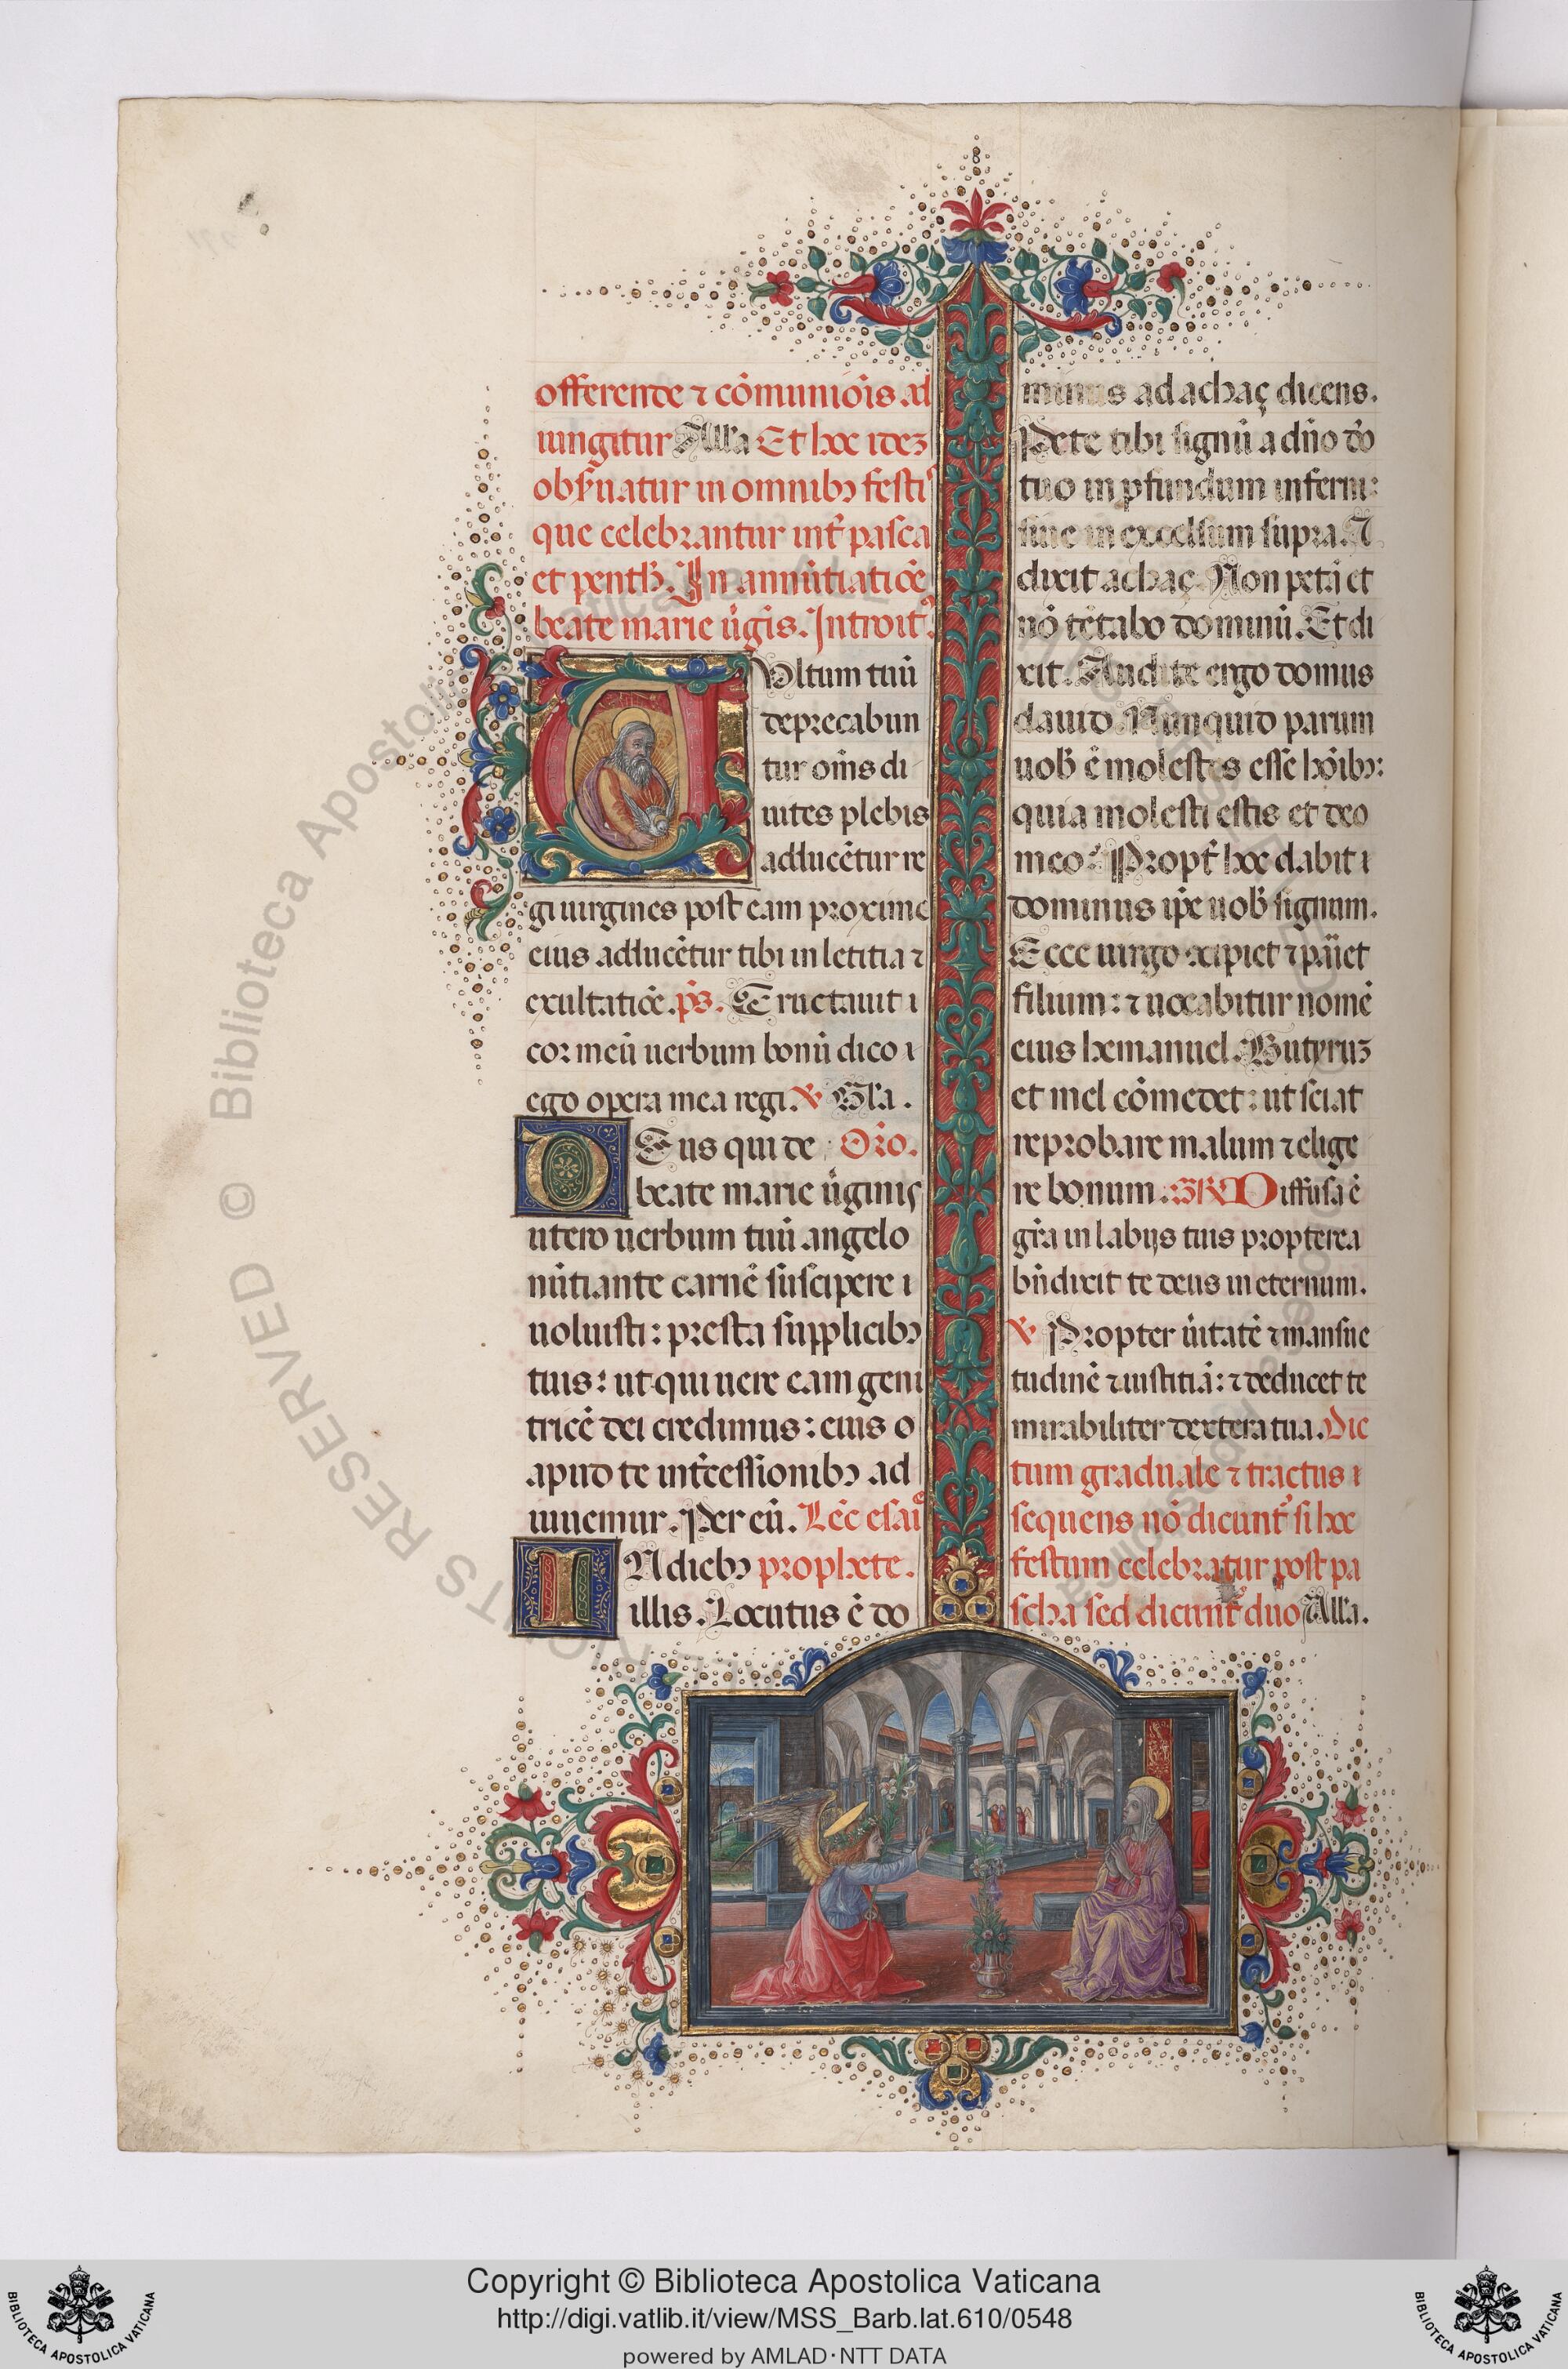 offerende ⁊ cõmuniõis ad
iungitur Alla Et hoc idez
obs̃uatur in omnibꝫ festiꝰ
que celebrantur int̃ pasca
et penth̃. In annũtiatiõe
beate marie ũgĩs. Introitꝰ.
VUltum tuũ
deprecabun
tur om̃s di
uites plebis
adducẽtur re
gi uirgines post eam proxime
eius adducẽtur tibi in letitia ⁊
exultatiõe. p̃s. Eructauit
cor meũ uerbum bonũ dico
ego opera mea regi. ꝟ Gl̃a.
DEus qui de Orõ.
beate marie ũginis
utero uerbum tuũ angelo
nũtiante carnẽ suscipere
uoluisti: presta supplicibꝫ
tuis: ut qui uere eam geni
tricẽ dei credimus: eius
apud te int̃cessionibꝫ ad
iuuemur. Per eũ. Lẽc esaiꝰ
IN diebꝫ prophete.
illis. Locutus ẽ do
minus ad achaç dicens.
Pete tibi signũ a dño dõ
tuo in ꝓfundum inferni:
siue in excelsum supra. Et
dixit achaç. Non petã et
nõ tẽtabo dominũ. Et di
xit. Audite ergo domus
dauid. Nunquid parum
uob̃ ẽ molestos esse hõibꝫ:
quia molesti estis et deo
meo? Propt̃ hoc dabit
dominus ip̃e uob̃ signum.
Ecce uirgo ↄcipiet ⁊ pariet
filium: ⁊ uocabitur nomẽ
eius hemanuel. Butyruz
et mel cõmedet: ut sciat
reprobare malum ⁊ elige
re bonum. GR Diffusa ẽ
gr̃a in labijs tuis propterea
bñdixit te deus in eternum.
ꝟ Propter ũitatẽ ⁊ mansue
tudinẽ ⁊ iustitiã: ⁊ deducet te
mirabiliter dextera tua. Dic
tum graduale ⁊ tractus
sequens nõ dicunt̃ si hoc
festum celebratur post pa
scha sed dicunt̃ duo Alla.
© Biblioteca Apostolica Vaticana ALL RIGHTS RESERVED
Copyright © Biblioteca Apostolica Vaticana
http://digi.vatlib.it/view/MSS_Barb.lat.610/0548
powered by AMLAD·NTT DATA
BIBLIOTECA APOSTOLICA VATICANA
BIBLIOTECA APOSTOLICA VATICANA